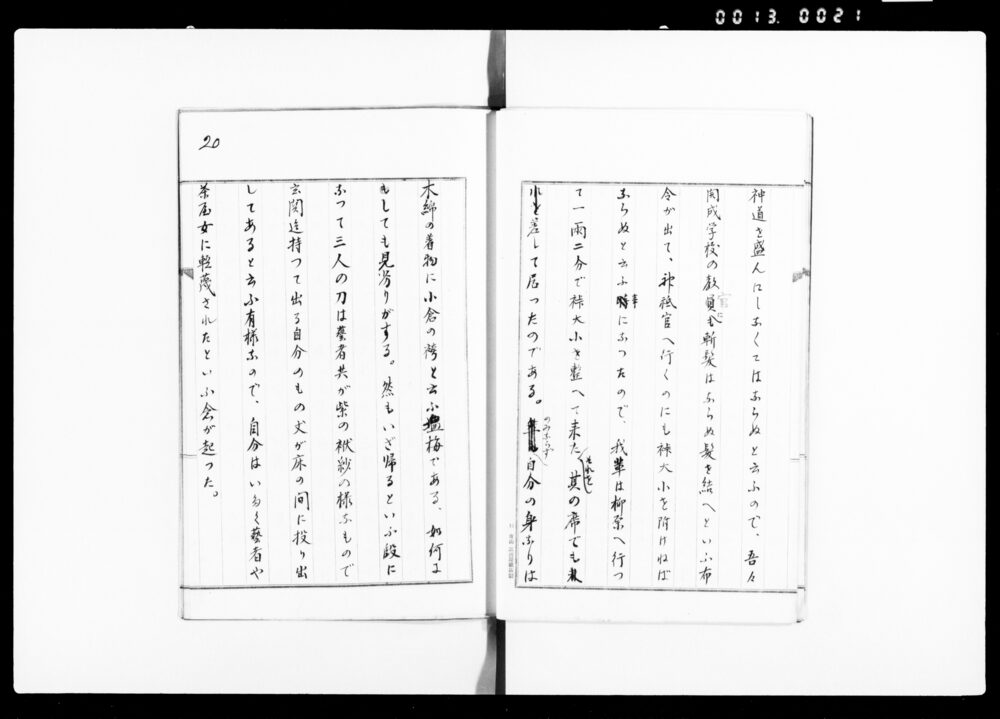 0013. 0021
神道を盛んにしなくてはならぬと云ふので、吾々
開成学校の教官に斬髪はならぬ髪を結へといふ布
令が出て、神祇官へ行くのにも裃大小を附けねば
ならぬと云ふ事になつたので、我輩は柳原へ行つ
て一両二分で裃大小を整へて来た、其の席でもそれを
差して居つたのである。のみならず自分の身なりは
20
木綿の着物に小倉の袴と云ふ塩梅である、如何に
もしても見劣りがする。然もいざ帰るといふ段に
なつて三人の刀は藝者共が紫の袱紗の様なもので
玄関迄持つて出る自分のもの丈が床の間に投り出
してあると云ふ有様なので、自分はいたく藝者や
茶屋女に軽蔑されたといふ念が起つた。